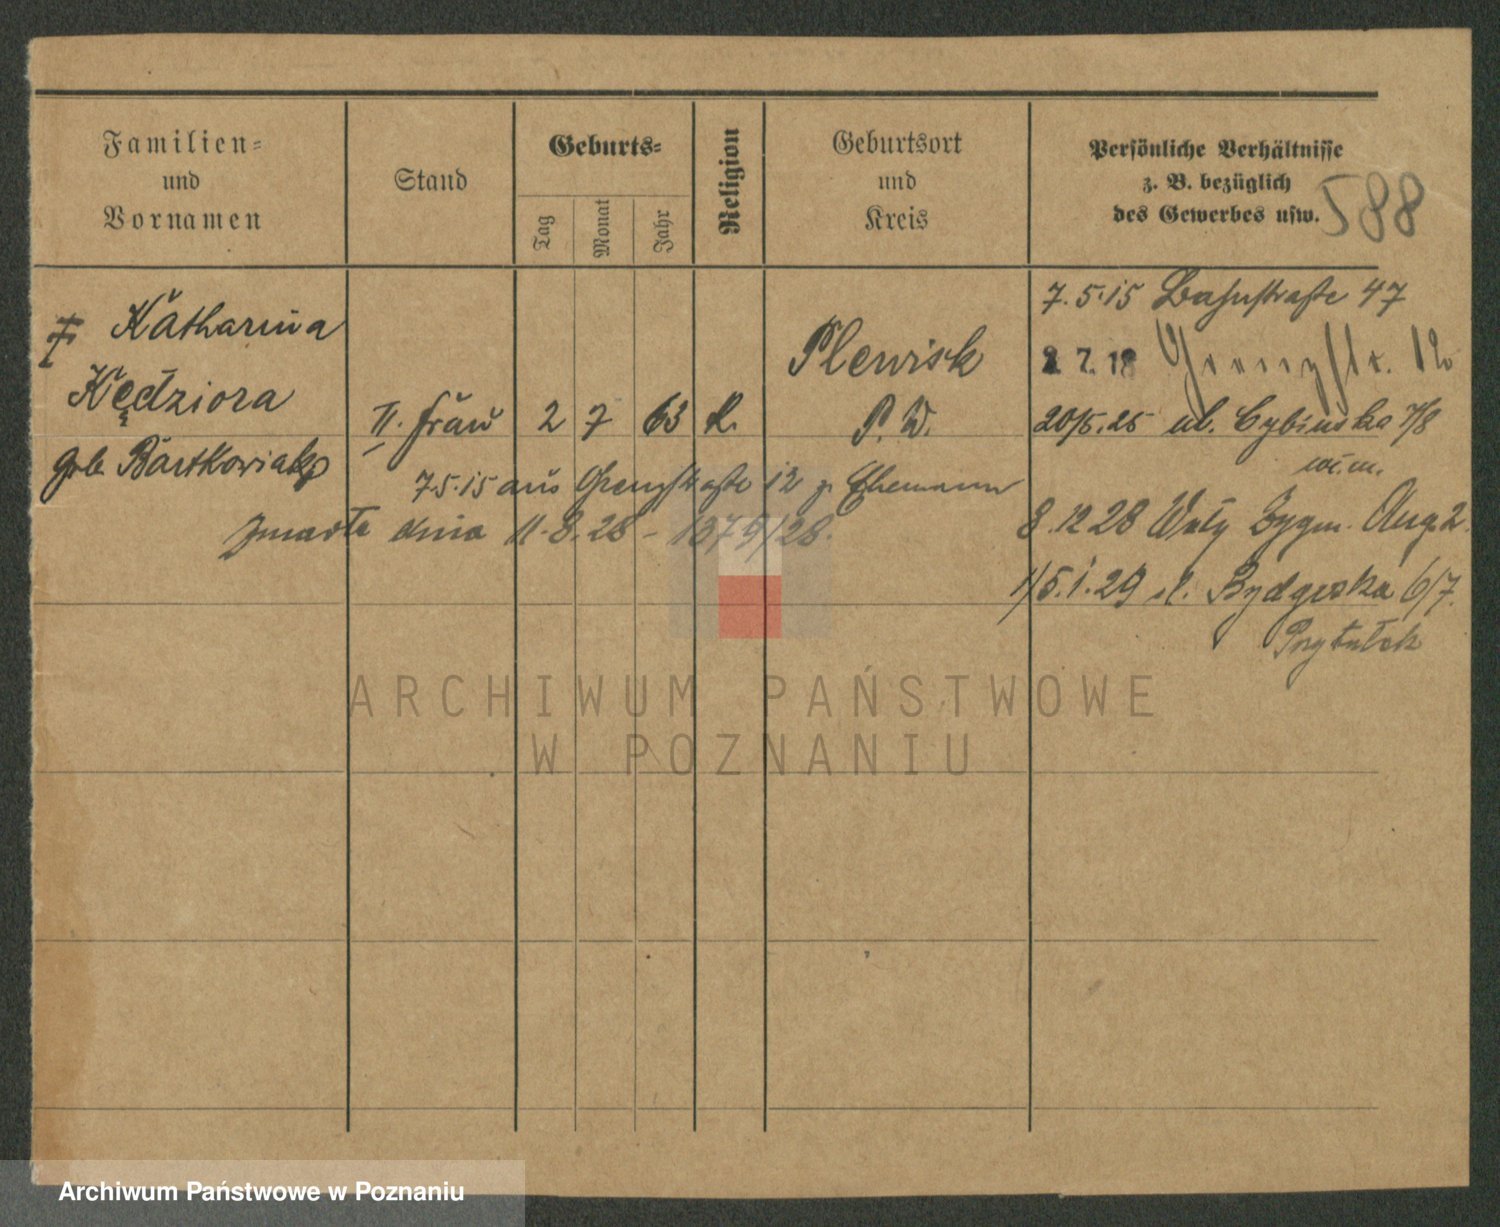 Familien=
und
Vornamen
Stand
Geburts=
Tag
Monat
Jahr
Religion
Geburtsort
und
Kreis
Persönliche Verhältnisse
z. B. bezüglich
des Gewerbes usw.
588
Katharina
Kędziora
geb. Bartkowiak
II. Frau
2
7
63
K.
Plewisk
P. W.
7.5.15 aus Grenzstraße 12 z. Ehemann
Zmarła dnia 11.8.28 - 1379/28.
7.5.15 Bahnstraße 47
2 7. 18 Grenzstr. 12
20/5.25 ul. Cybinska 7/8
8.12 28 Wały Zygm. Aug. 2.
15.1.29 ul. Bydgoska 6/7.
Przytułek
ARCHIWUM PAŃSTWOWE
W POZNANIU
Archiwum Państwowe w Poznaniu